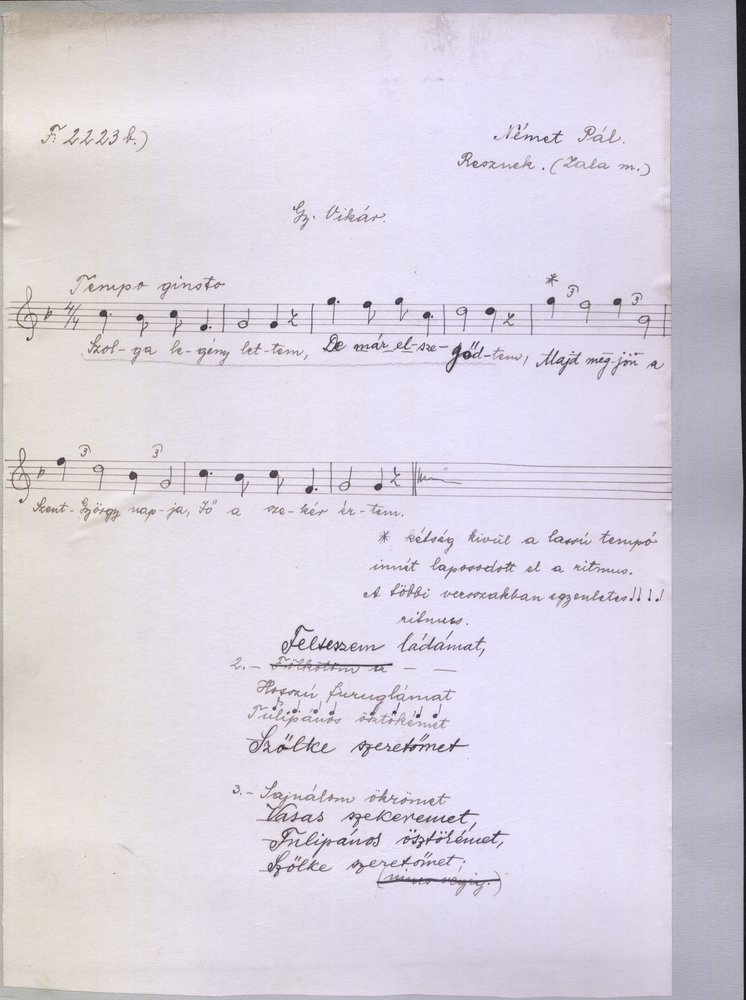 F. 2223 b.)
Német Pál.
Resznek. (Zala m.)
Gy. Vikár.
Tempo giusto
4/4
*
3 3
Szol-ga le-gény let-tem, De már el-sze-gőd-tem, Majd meg-jön a
3 3
Szent-György nap-ja, Jő a sze-kér ér-tem.
* kétség kivül a lassú tempó
innét laposodott el a ritmus.
A többi versszakban egyenletes!!!!
ritmus.
Felteszem ládámat,
2.- Fölkötöm a - -
Hosszú furuglámat
Tulipános ösztökémet
Szőlke szeretőmet
3.- Sajnálom ökrömet
Vasas szekeremet,
Tulipános ösztökémet,
Szőlke szeretőmet;
(nincs végig.)